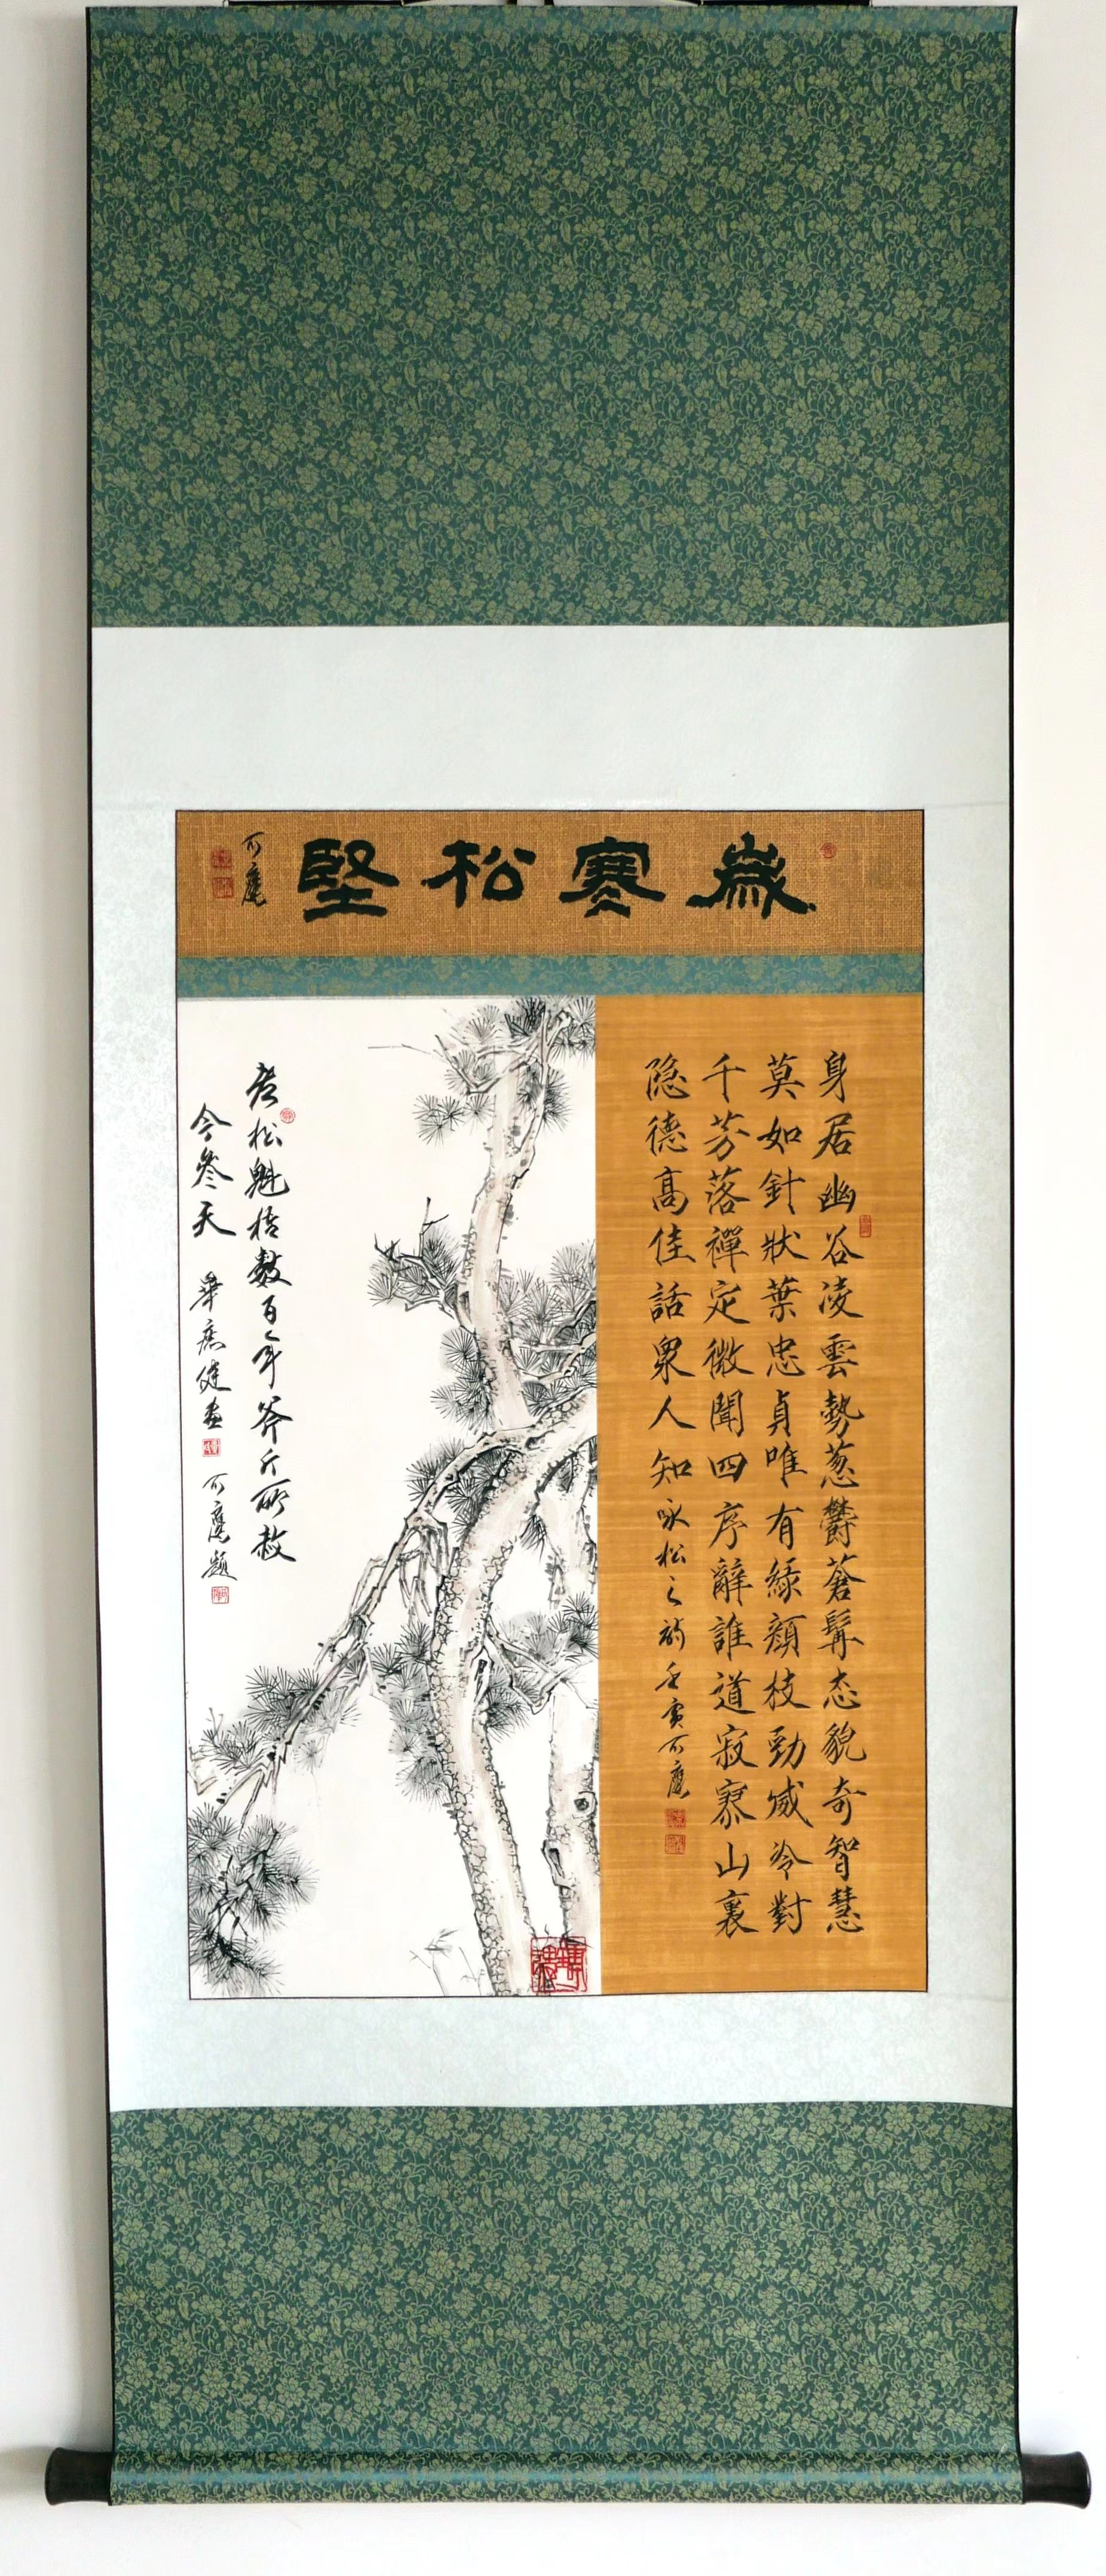 歲寒松堅
可庵
身居幽谷凌雲勢蔥欝蒼髯态貌奇智慧
莫如針狀葉忠貞唯有綠顏枝勁威冷對
千芳落禪定微聞四序辭誰道寂寥山裏
隐德高佳話衆人知咏松之韵壬寅可庵
老松魁梧數百年斧斤所赦
今參天
可庵題